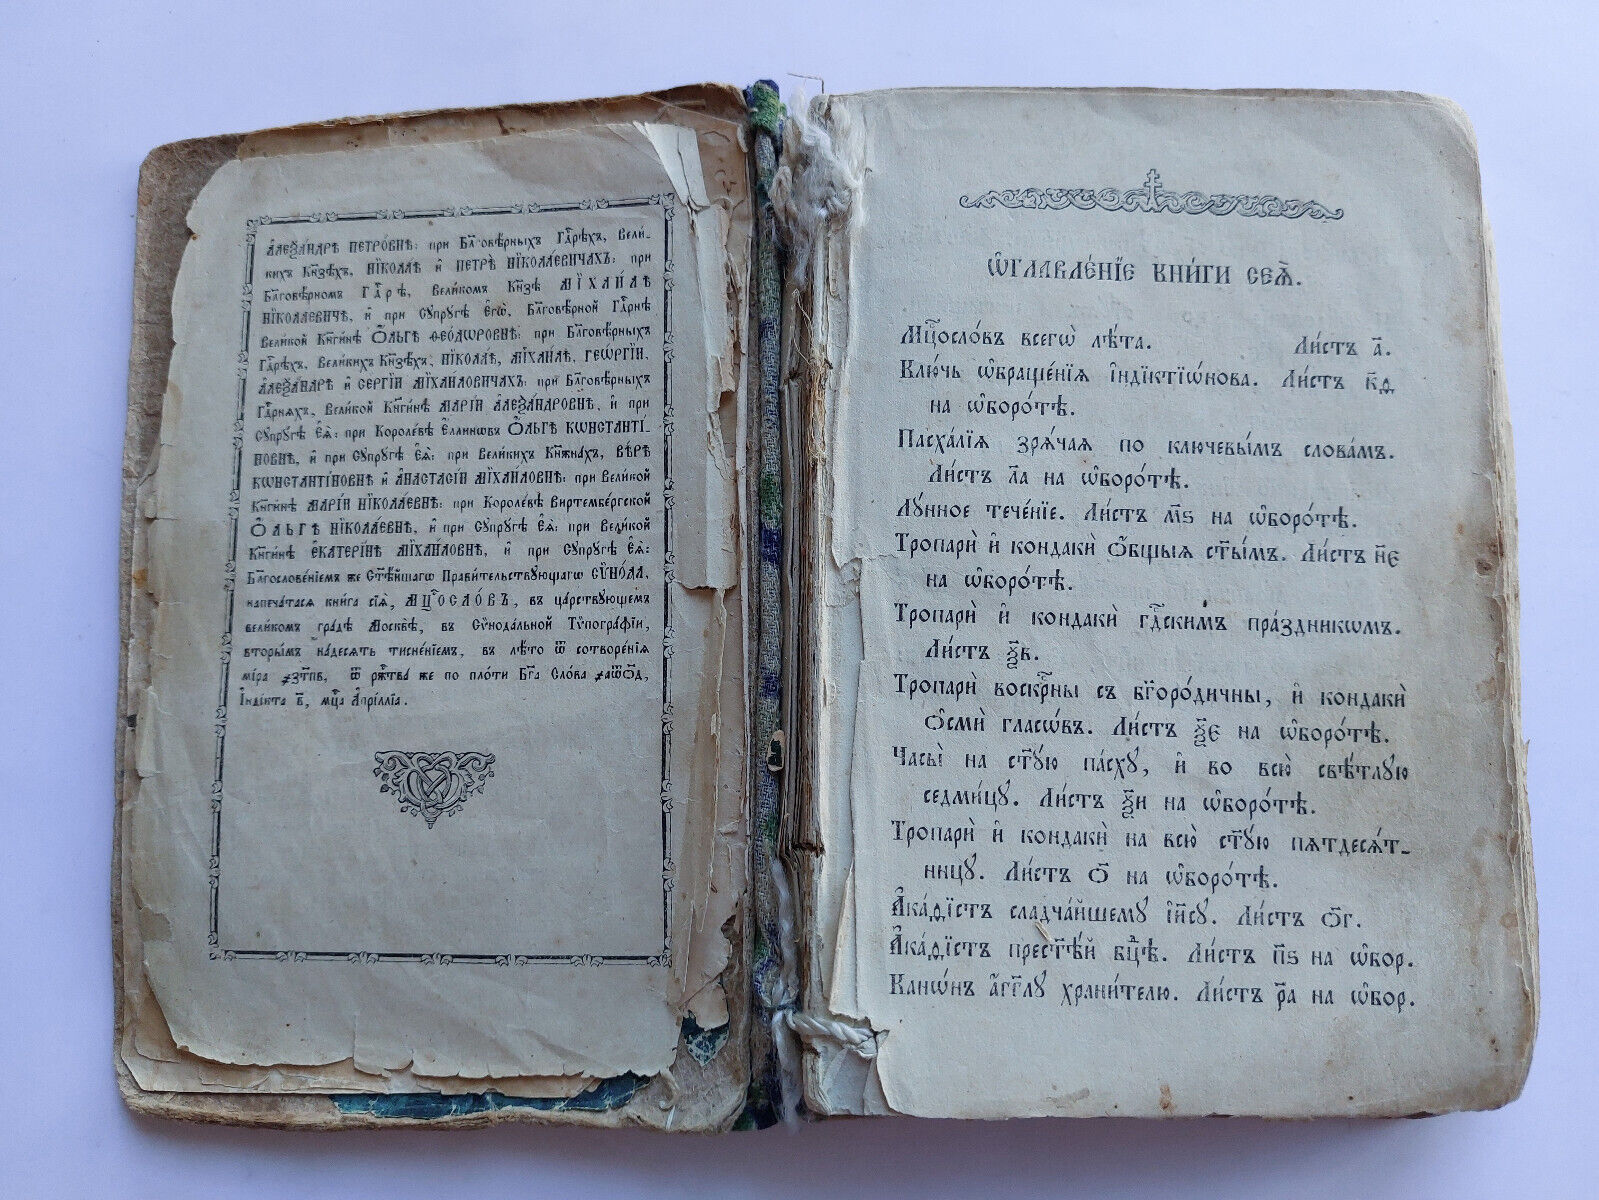 А҆леѯа́ндрѣ Петро́внѣ: при Бл҃гове́рныхъ Гдⷭ҇рѣхъ, Вели-
кихъ Кн҃зѣхъ, Нїкола́ѣ и҆ Петрѣ̀ Нїкола́евичахъ: при
Бл҃гове́рномъ Гдⷭ҇рѣ, Вели́комъ Кн҃зѣ Мїхаи́лѣ
Нїкола́евичѣ, и҆ при Сꙋпрꙋ́гѣ Є҆гѡ̀, Бл҃гове́рной Гдⷭ҇рнѣ
Вели́кой Кн҃ги́нѣ Ѻ҆́льгѣ Ѳео́дѡровнѣ: при Бл҃гове́рныхъ
Гдⷭ҇рѣхъ, Вели́кихъ Кн҃зѣхъ, Нїкола́ѣ, Мїхаи́лѣ, Геѡ́ргїи,
А҆леѯа́ндрѣ и҆ Се́ргїи Мїха́йловичахъ: при Бл҃гове́рныхъ
Гдⷭ҇рнѧхъ, Вели́кой Кн҃ги́нѣ Марі́и А҆леѯа́ндровнѣ, и҆ при
Сꙋпрꙋ́гѣ Є҆ѧ̀: при Короле́вѣ Е҆́ллинѡвъ Ѻ҆́льгѣ Кѡнстанті-
новнѣ, и҆ при Сꙋпрꙋ́гѣ Є҆ѧ̀: при Вели́кихъ Кн҃жна́хъ, Вѣ́рѣ
Кѡнстанті́новнѣ и҆ А҆настасі́и Мїха́йловнѣ: при Вели́кой
Кн҃ги́нѣ Марі́и Нїкола́евнѣ: при Короле́вѣ Виртембе́ргской
Ѻ҆́льгѣ Нїкола́евнѣ, и҆ при Сꙋпрꙋ́гѣ Є҆ѧ̀: при Вели́кой
Кн҃ги́нѣ Є҆катері́нѣ Мїха́йловнѣ, и҆ при Сꙋпрꙋ́гѣ Є҆ѧ̀:
Бл҃гослове́нїемъ же Ст҃ѣ́йшагѡ Прави́тельствꙋющагѡ Сѷно́да,
напеча́тасѧ кни́га сїѧ̀, Мцⷭ҇осло́въ, въ ца́рствꙋющемъ
вели́комъ гра́дѣ Москвѣ̀, въ Сѷнода́льной Тѷпогра́фїи,
вторы́мъ на́десѧть тисне́нїемъ, въ лѣ́то ѿ сотворе́нїѧ
мі́ра ҂зт҃пв, ѿ рж҇тва́ же по пло́ти Бг҃а Сло́ва ҂аѿо҃д,
І҆нді́кта в҃, мцⷭ҇а А҆прі́ллїа.
Ѡ҆главле́нїе кни́ги сеѧ̀.
Мцⷭ҇осло́въ всегѡ̀ лѣ́та. Ли́стъ а҃.
Клю́чь ѡ҆браще́нїѧ і҆ндїктїѡ́нова. Ли́стъ к҃ѳ
на ѡ҆боро́тѣ.
Пасха́лїѧ зрѧ́чаѧ по ключевы̑мъ слова́мъ.
Ли́стъ л҃а на ѡ҆боро́тѣ.
Лꙋ́нное тече́нїе. Ли́стъ м҃ѕ на ѡ҆боро́тѣ.
Тропари̑ и҆ кондаки̑ ѻ҆́бщыѧ ст҃ы̑мъ. Ли́стъ н҃є
на ѡ҆боро́тѣ.
Тропари̑ и҆ кондаки̑ гдⷭ҇скимъ пра́здникѡмъ.
Ли́стъ ѯ҃в.
Тропари̑ воскрⷭ҇ны съ бг҃оро́дичны, и҆ кондаки̑
ѻ҆смѝ гласѡ́въ. Ли́стъ ѯ҃є на ѡ҆боро́тѣ.
Часы̀ на ст҃ꙋ́ю па́схꙋ, и҆ во всю̀ свѣ́тлꙋю
седми́цꙋ. Ли́стъ ѯ҃и на ѡ҆боро́тѣ.
Тропари̑ и҆ кондаки̑ на всю̀ ст҃ꙋ́ю пѧтдесѧ́т-
ницꙋ. Ли́стъ ѻ҃ на ѡ҆боро́тѣ.
А҆ка́ѳїстъ сладча́йшемꙋ і҆и҃сꙋ. Ли́стъ ѻ҃г.
А҆ка́ѳїстъ прест҃ѣ́й бц҃ѣ. Ли́стъ п҃ѕ на ѡ҆бор.
Канѡ́нъ а҆́гг҃лꙋ храни́телю. Ли́стъ р҃а на ѡ҆бор.